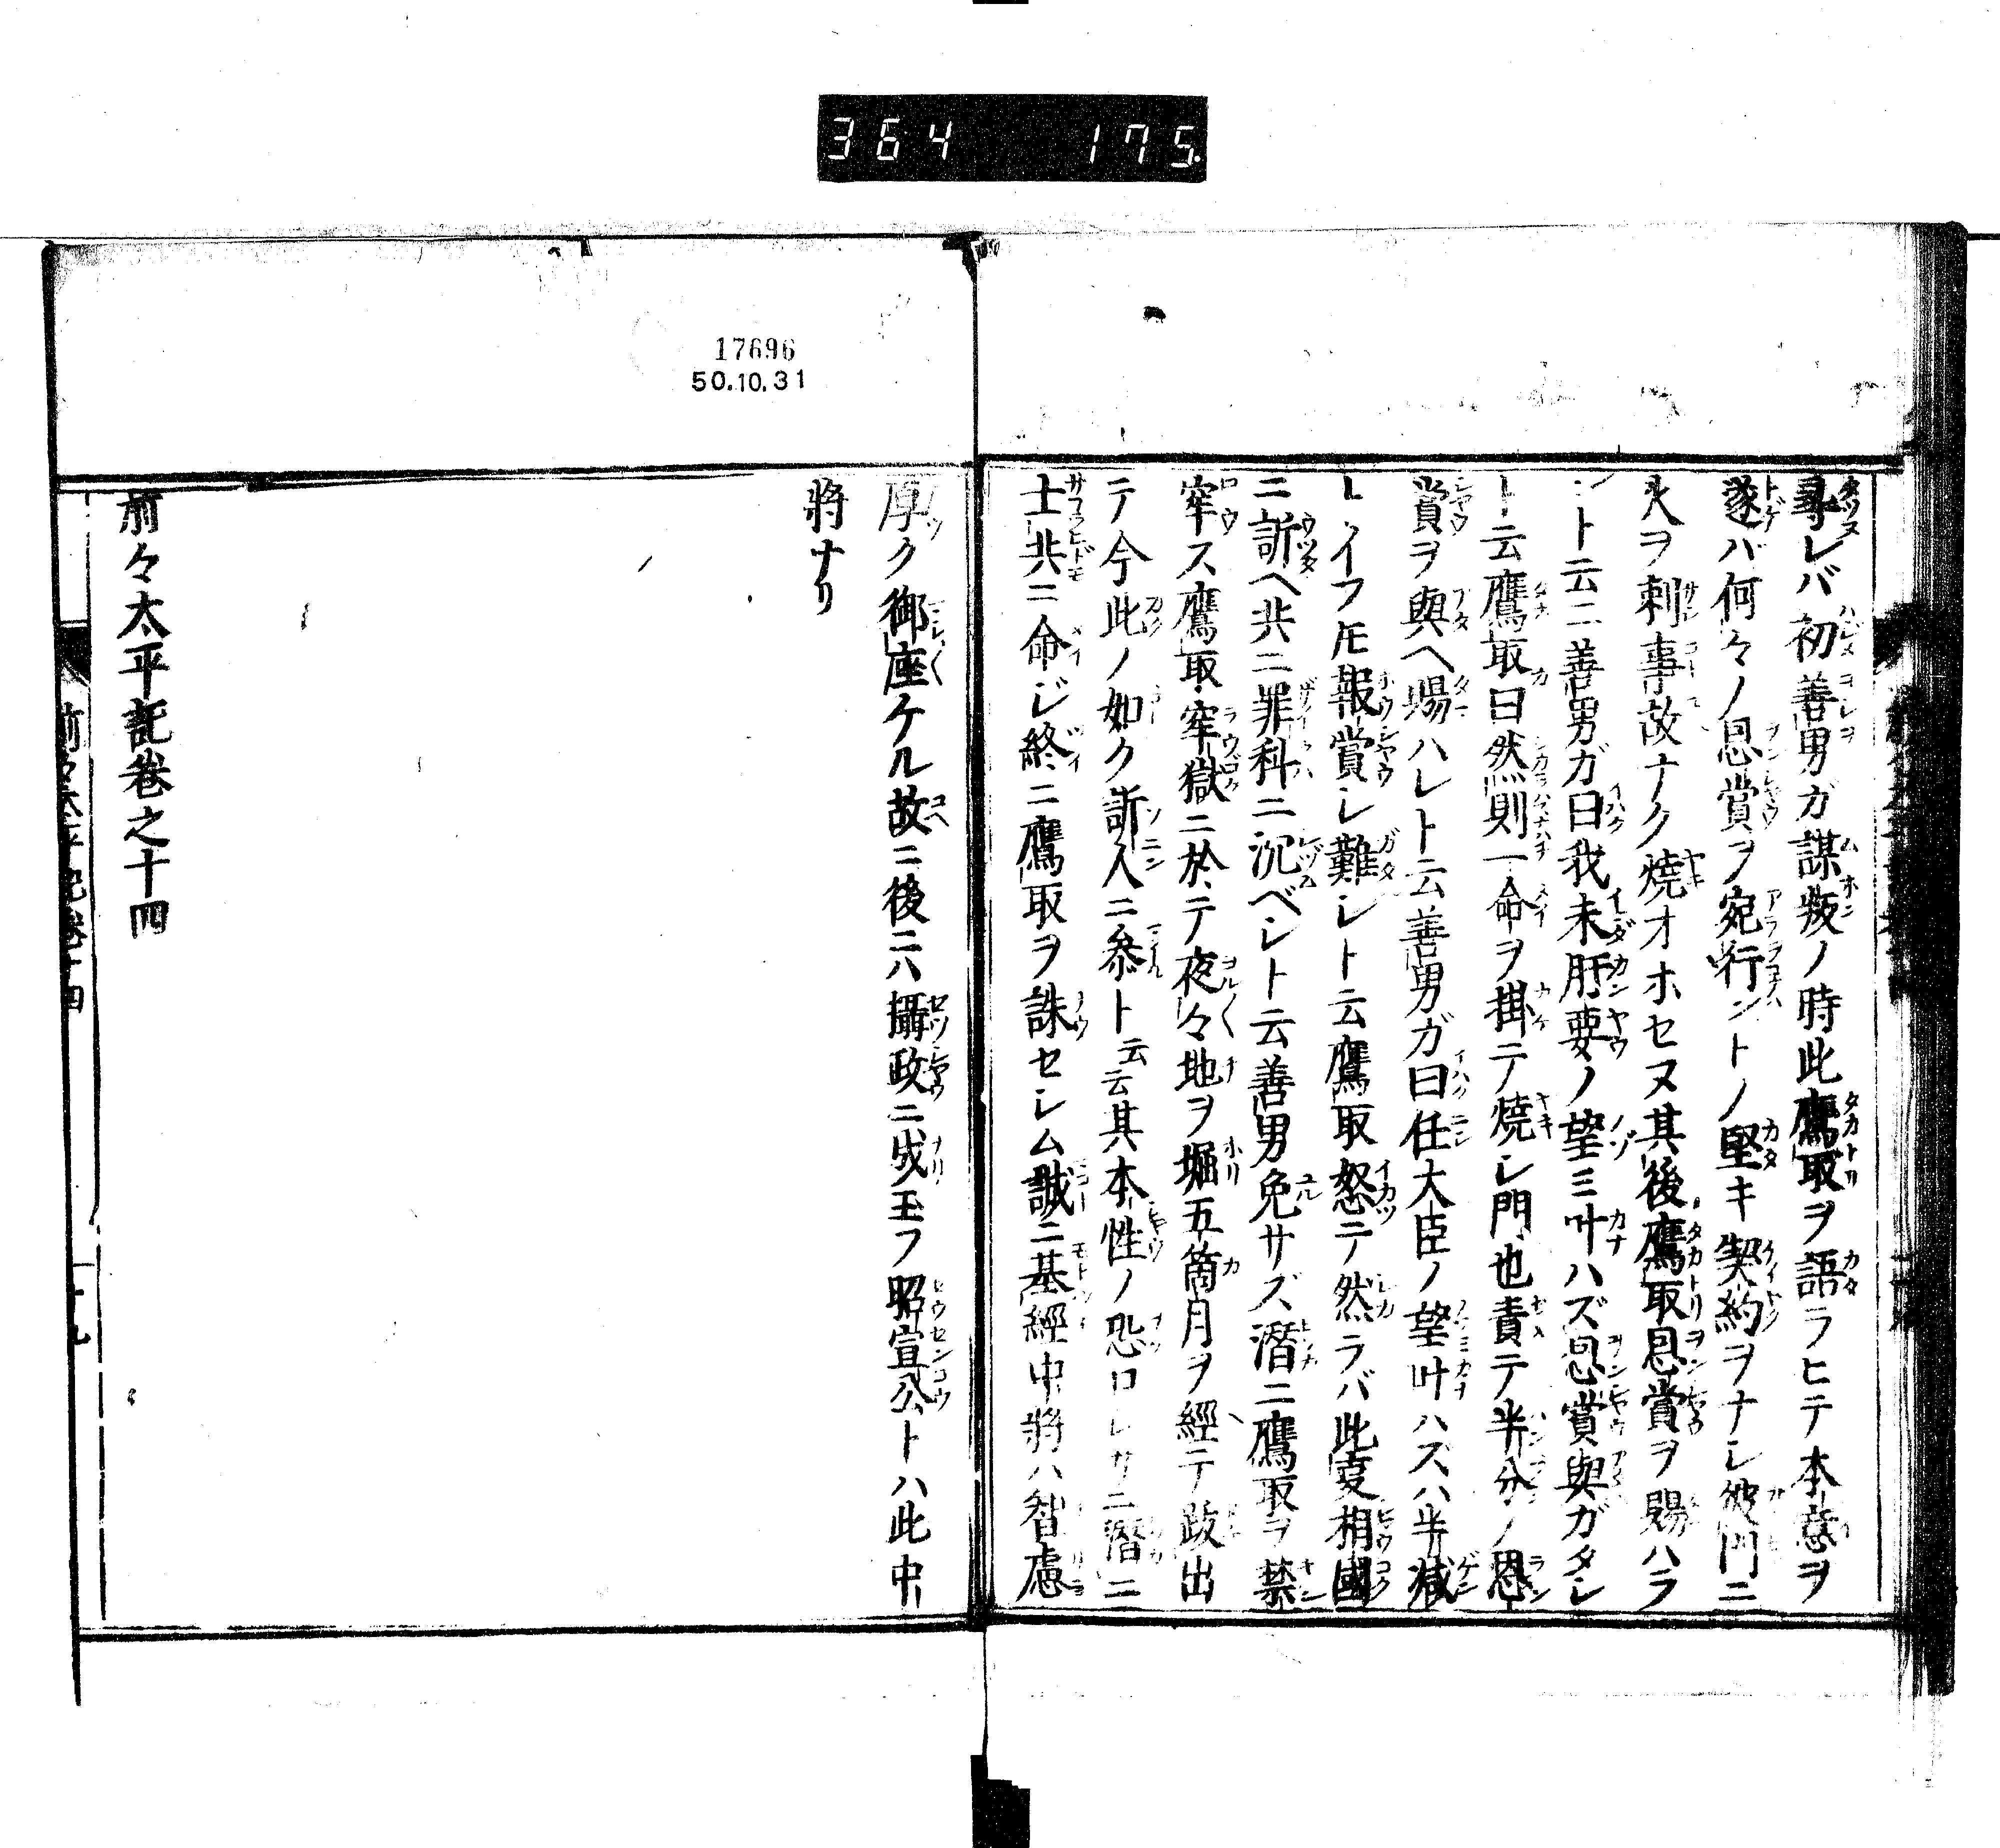 364 175
17696
50.10.31
尋レバ初善男ガ謀叛ノ時此鷹取ヲ語ラヒテ本意ヲ
遂バ何々ノ恩賞ヲ宛行ントノ堅キ契約ヲナシ彼門ニ
火ヲ刺事故ナク燒オホセヌ其後鷹取恩賞ヲ賜ハラ
ント云ニ善男ガ曰我未肝要ノ望ミ叶ハズ恩賞與ガタシ
ト云鷹取曰然則一命ヲ掛テ燒シ門也責テ半分ノ恩
賞ヲ與ヘ賜ハレト云善男ガ曰任大臣ノ望叶ハスハ半減
トイフ圧報賞シ難シト云鷹取怒テ然ラバ此㕝相國
ニ訴ヘ共ニ罪科ニ沉ベシト云善男免サズ潛ニ鷹取ヲ禁
窂ス鷹取窂獄ニ於テ夜々地ヲ堀五箇月ヲ經テ跂出
テ今此ノ如ク訴人ニ參ト云云其本性ノ恐ロシサニ潛ニ
士共ニ命ジ終ニ鷹取ヲ誅セシム誠ニ基經中將ハ智慮
厚ク御座ケル故ニ後ニハ攝政ニ成玉フ昭宣公トハ此中
將ナリ
前々太平記卷之十四
前々太平記卷十四
十九